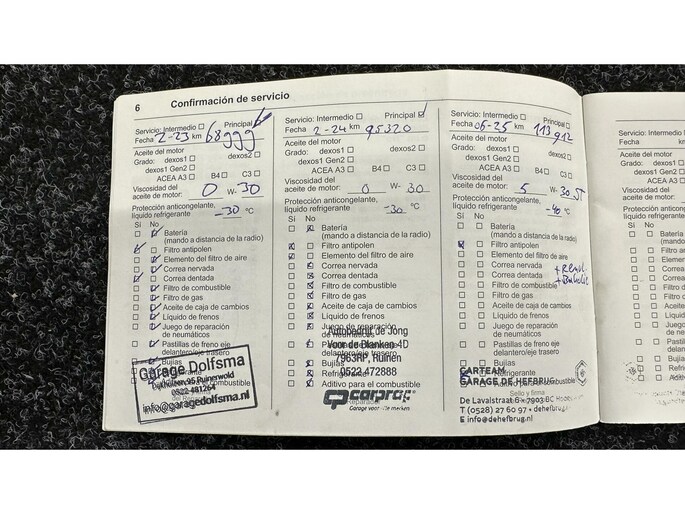 6 Confirmación de servicio
Servicio: Intermedio Principal
Fecha 2-23 km 68999
Aceite del motor
Grado: dexos1 dexos2
dexos1 Gen2
ACEA A3 B4 C3
Viscosidad del
aceite de motor: 0 W- 30
Protección anticongelante,
líquido refrigerante -30 °C
Sí No
Batería
(mando a distancia de la radio)
Filtro antipolen
Elemento del filtro de aire
Correa nervada
Correa dentada
Filtro de combustible
Filtro de gas
Aceite de caja de cambios
Líquido de frenos
Juego de reparación
de neumáticos
Pastillas de freno eje
delantero/eje trasero
Bujías
Garage Dolfsma
Ruinerwold
0522-481264
info@garagedolfsma.nl
Servicio: Intermedio Principal
Fecha 2-24 km 95320
Aceite del motor
Grado: dexos1 dexos2
dexos1 Gen2
ACEA A3 B4 C3
Viscosidad del
aceite de motor: 0 W- 30
Protección anticongelante,
líquido refrigerante -30 °C
Sí No
Batería
(mando a distancia de la radio)
Filtro antipolen
Elemento del filtro de aire
Correa nervada
Correa dentada
Filtro de combustible
Filtro de gas
Aceite de caja de cambios
Líquido de frenos
Juego de reparación
de neumáticos
Autobedrijf de Jong
Voor de Blanken 4D
7963RP, Ruinen
0522 472888
Bujías
Refrigerante
Aditivo para el combustible
cp carprof
Garage voor alle merken
Servicio: Intermedio Principal
Fecha 06-25 km 113912
Aceite del motor
Grado: dexos1 dexos2
dexos1 Gen2
ACEA A3 B4 C3
Viscosidad del
aceite de motor: 5 W- 30
Protección anticongelante,
líquido refrigerante -40 °C
Sí No
Batería
(mando a distancia de la radio)
Filtro antipolen
Elemento del filtro de aire
Correa nervada
Correa dentada
Filtro de combustible
Filtro de gas
Aceite de caja de cambios
Líquido de frenos
Juego de reparación
de neumáticos
Pastillas de freno eje
delantero/eje trasero
Bujías
CARTEAM
GARAGE DE HEFBRUG
Sello y firma
De Lavalstraat 6 - 7903 BC
T (0528) 27 60 97 - dehefbrug.nl
E info@dehefbrug.nl
Servicio: Intermedio
Fecha
Aceite del motor
Grado: dexos1
dexos1 Gen2
ACEA A3
Viscosidad del
aceite de motor:
Protección anticongelante,
líquido refrigerante
Sí No